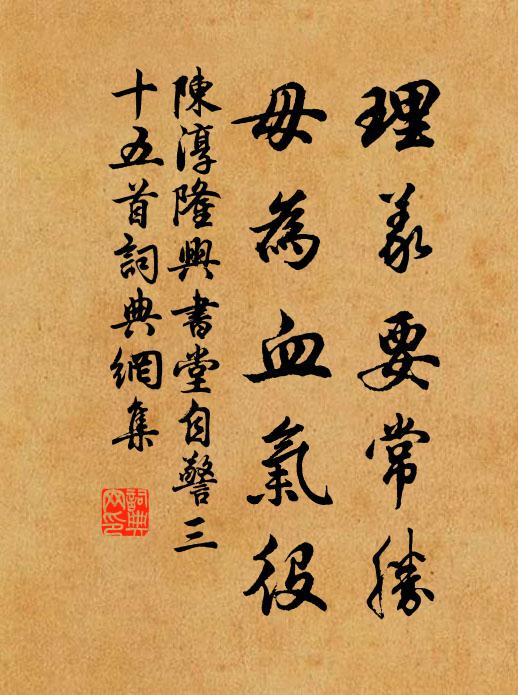 理義要常勝
毋為血氣役
陳淳隆興書堂自警三
十五首詞典網集
詞典
网印